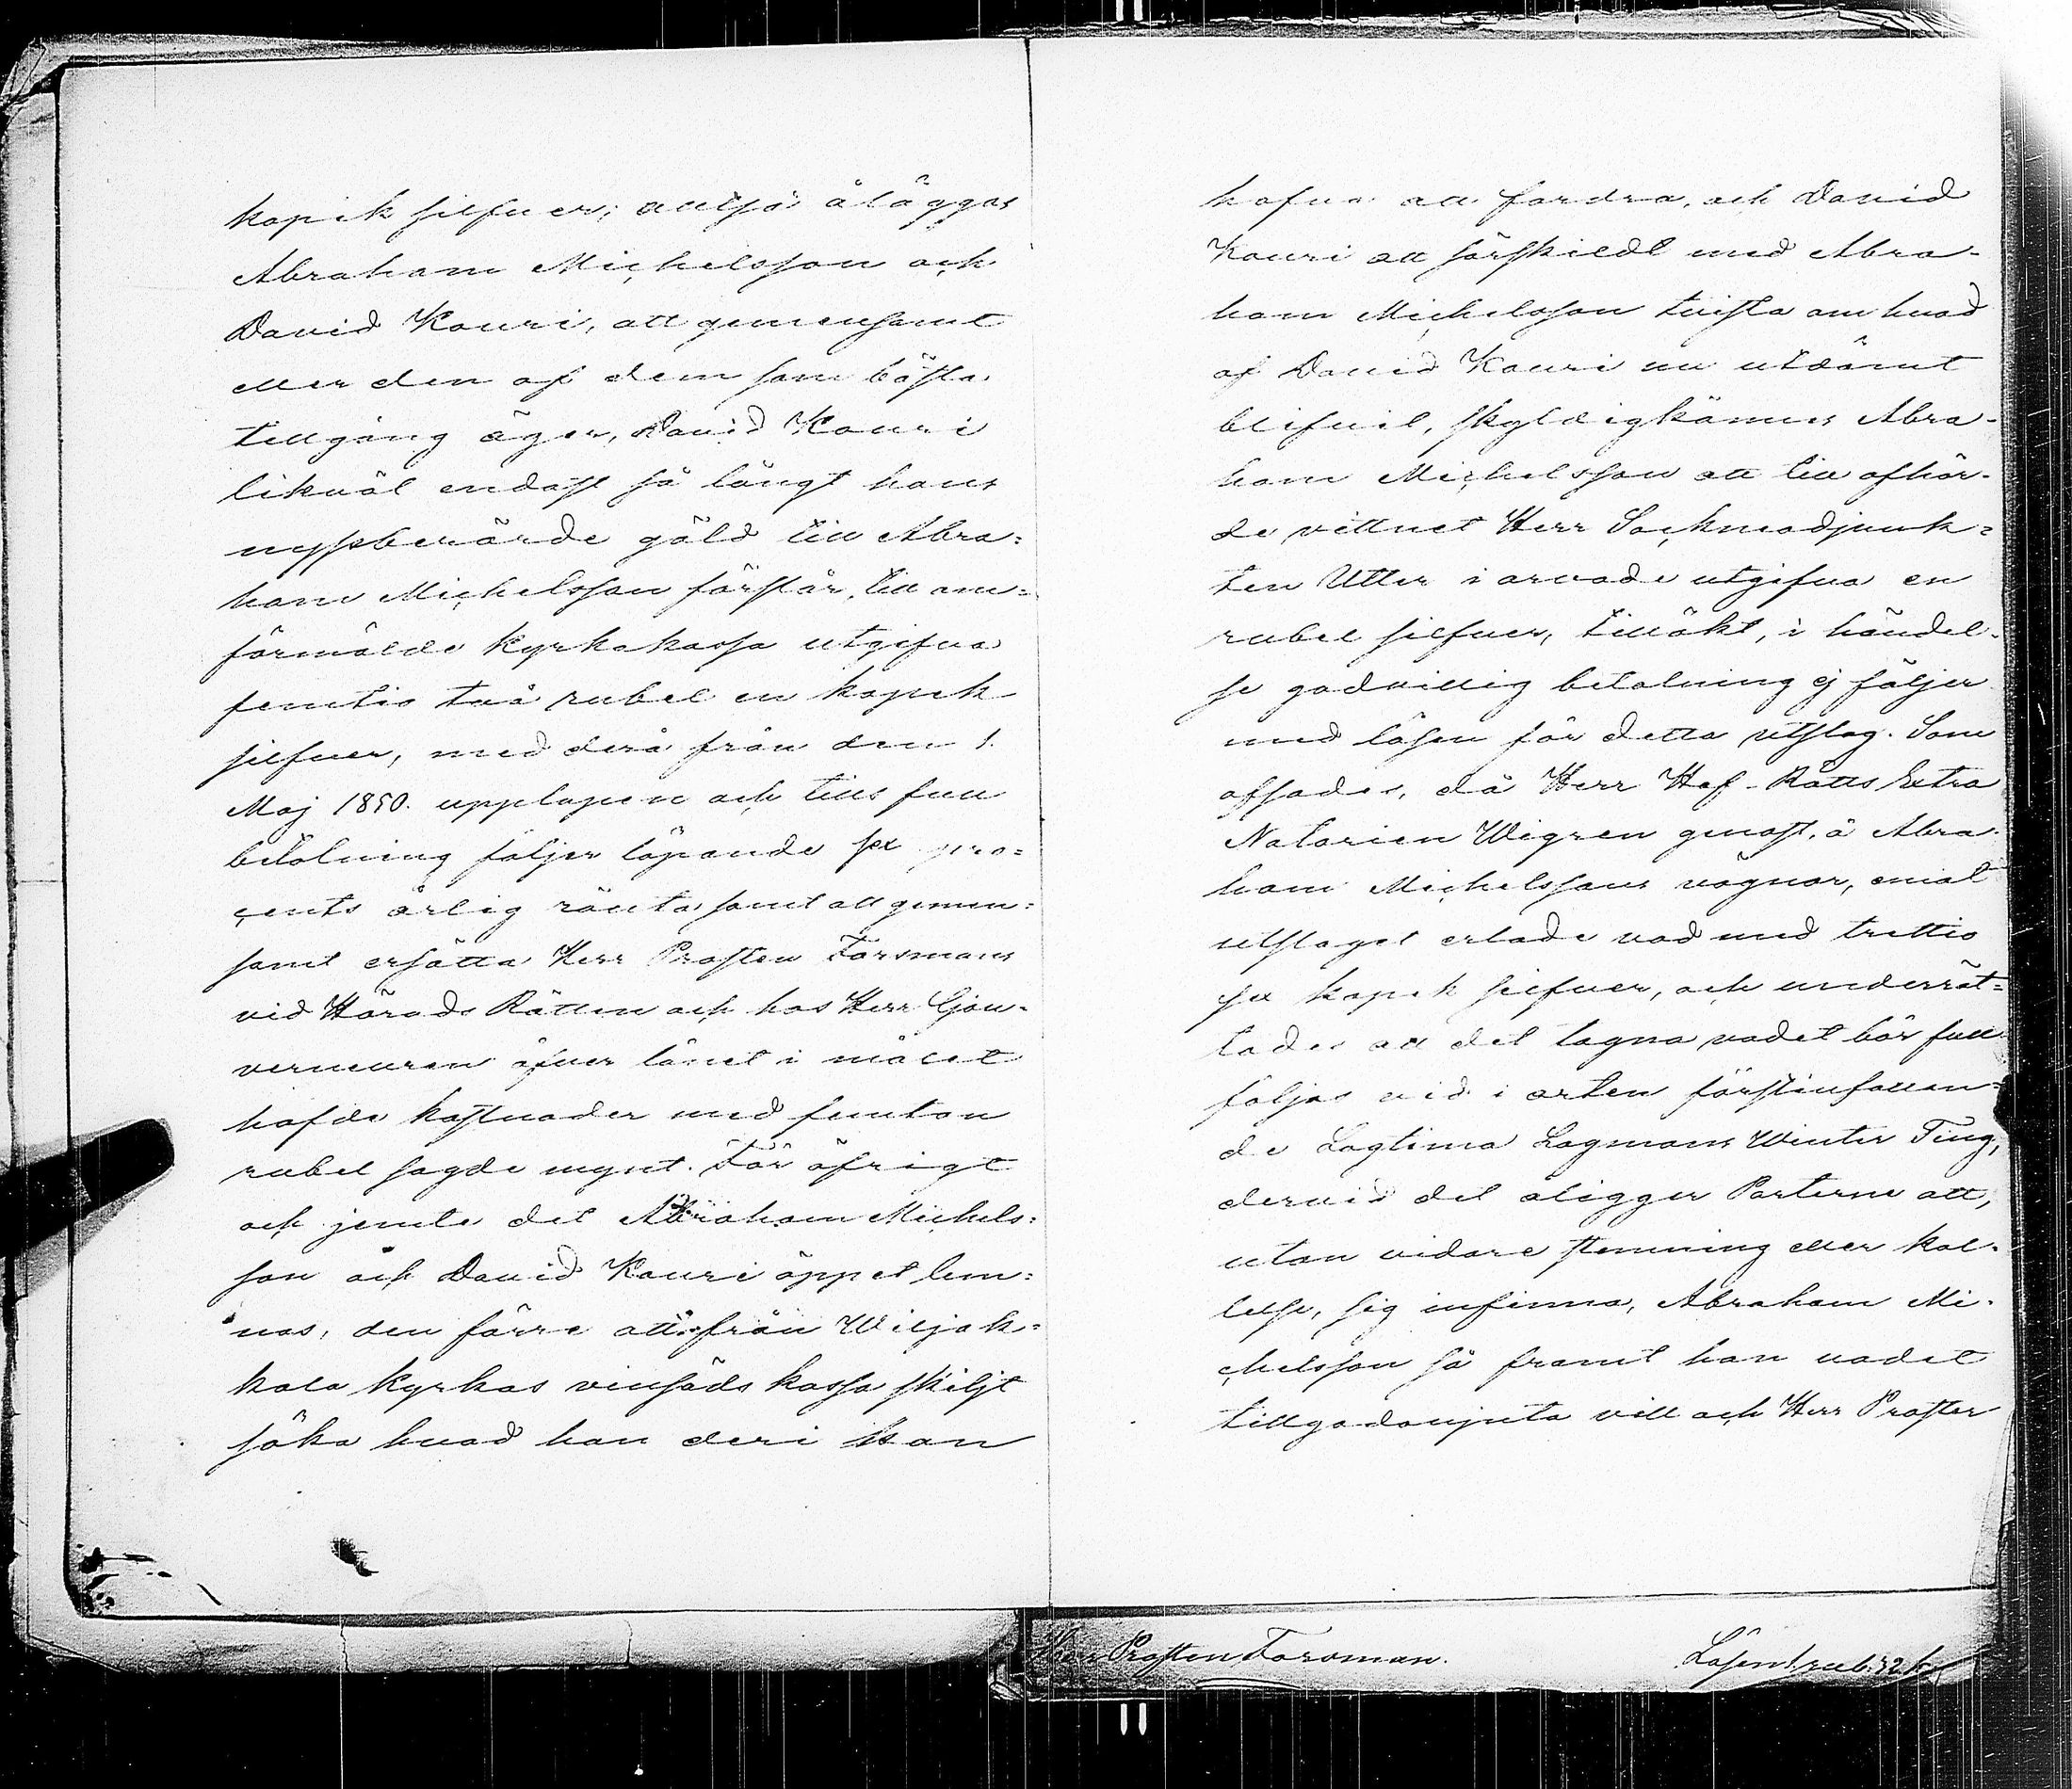 kopek silfver; altså åläggas
Abraham Michelsson och
David Kouri, att gemensamt
eller den af dem som bästa
tillgång äger, David Kouri
likväl endast så långt hans
nyssberörde gäld till Abra=
ham Michelsson förslår, till om=
förmälde kyrkokassa utgifva
femtio två rubel en kopek
silfver, med derå från den 1.
Maj 1850. upplupen och tills full
betalning följer löpande sex pro=
cents årlig ränta samt att gemen=
samt ersätta Herr Prosten Forsmans
vid Härads Rätten och hos Herr Gou-
verneuren öfver länet i målet
hafde kostnader med femton
rubel sagde mynt. För öfrigt
och jemte det Abraham Michels=
son och David Kouri öppet lem=
nas, den förre att från Wiljak=
kala kyrkas vinsäds kassa skiljt
söka hvad han deri kan
hafva att fordra, och David
Kouri att särskildt med Abra-
ham Michelsson tvista om hvad
af David Kouri nu utdömt
blifvit, skyldigkännes Abra-
ham Michelsson att till afhör-
de vittnet Herr Sockneadjunk=
ten Utter i arvode utgifva en
rubel silfver, tillökt, i händel-
se godvillig betalning ej följer
med lösen för detta utslag. Som
afsades, då Herr Hof-Rätts Extra
Notarien Wigren genast, å Abra-
ham Michelssons vägnar, emot
utslaget erlade vad med trettio
sex kopek silfver, och underrät=
tades att det tagna vadet bör full
följas vid i orten förstinfallan=
de Lagtima Lagmans Winter Ting,
dervid det åligger Parterne att,
utan vidare stemning eller kal-
lelse, sig infinna, Abraham Mi-
chelsson så framt han vadet
tillgodonjuta vill och Herr Prosten
Herr Prosten Forsman.
Lösen 1. rub. 72 k